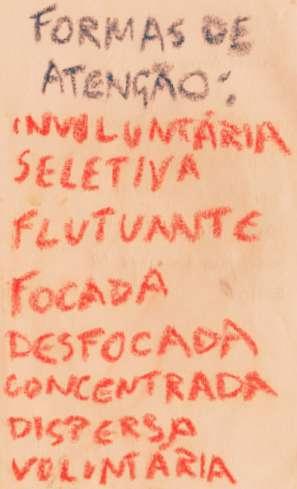 FORMAS DE
ATENÇÃO:
INVOLUNTÁRIA
SELETIVA
FLUTUANTE
FOCADA
DESFOCADA
CONCENTRADA
DISPERSA
VOLUNTÁRIA